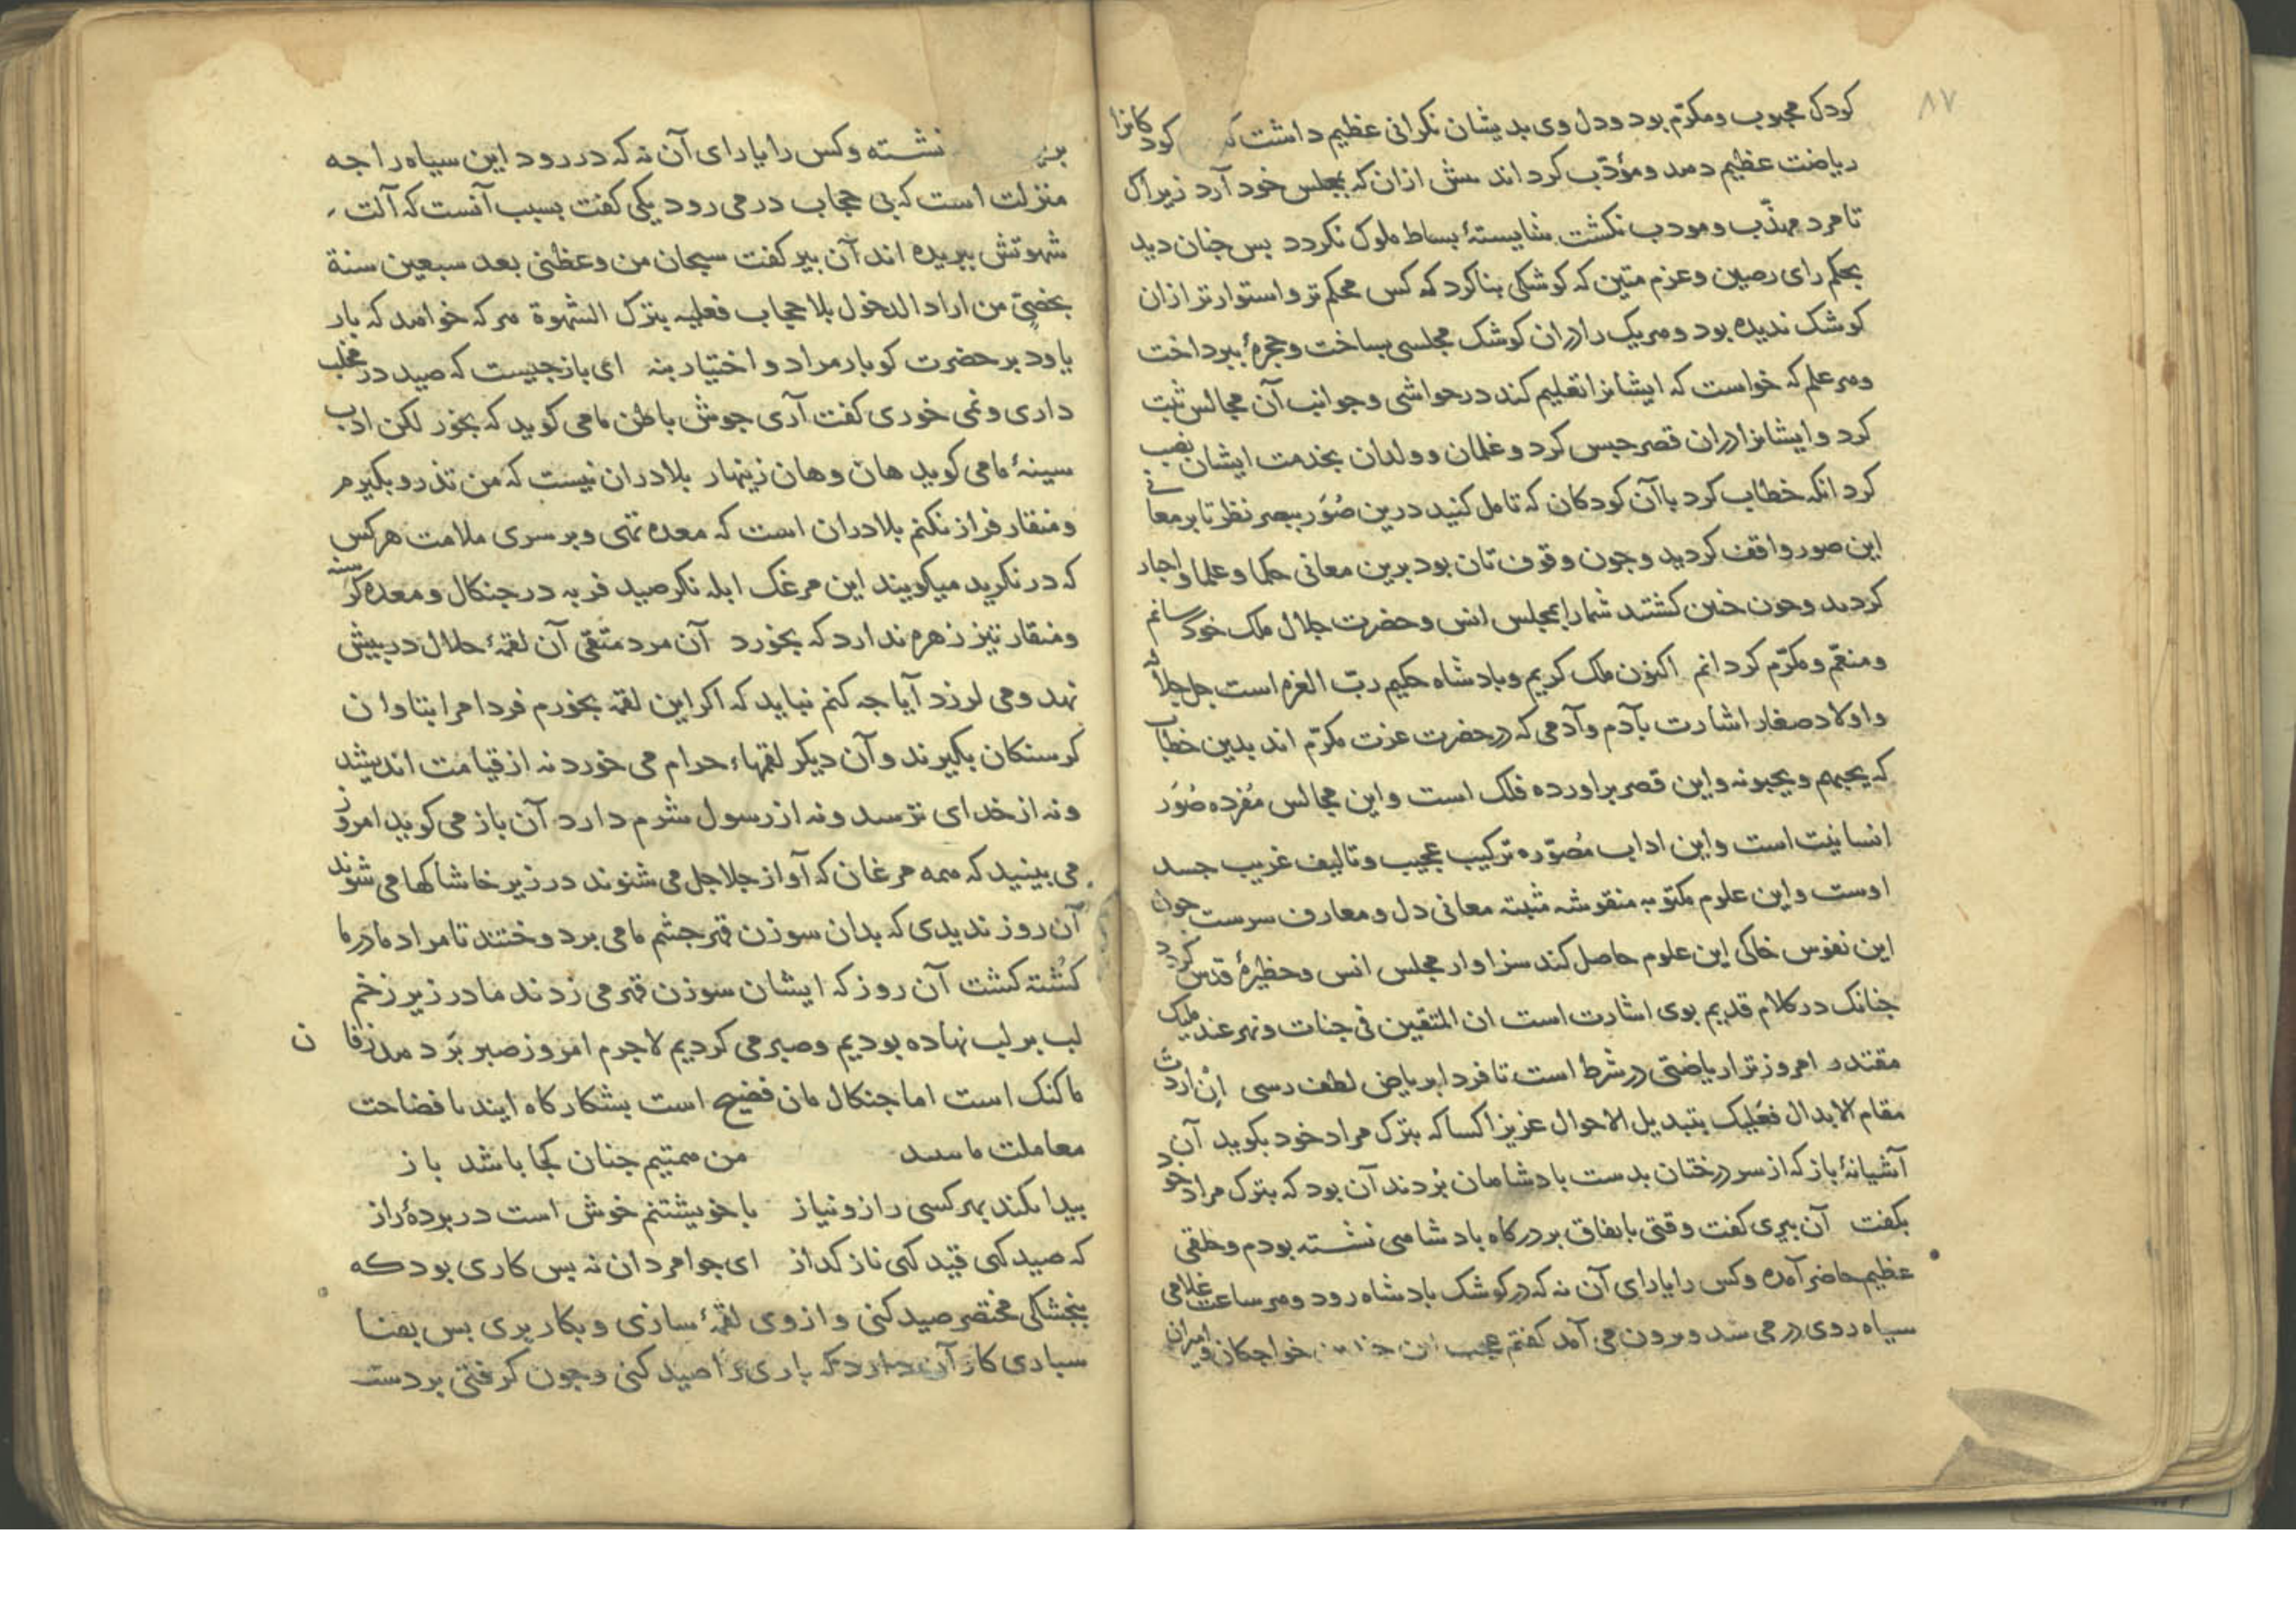 ۸۷
کودک محبوب ومکرّم بود ودل وی بدیشان نکرانی عظیم داشت که کودکانرا
ریاضت عظیم دهد ومؤدّب کرداند بیش ازان که بمجلس خود آرد زیراک
تا مرد مهذّب ومودب نکشت شایستۀ بساط ملوک نکردد بس جنان دید
بحکم رای رصین وعزم متین که کوشکی بنا کرد که کس محکم تر واستوارتر ازان
کوشک ندیده بود وهر یک را دران کوشک مجلسی بساخت وحجرۀ ببرداخت
وهر علم که خواست که ایشانرا تعلیم کند در حواشی وجوانب آن مجالس ثبت
کرد وایشانرا دران قصر حبس کرد وغلمان وولدان بخدمت ایشان نصب
کرد انکه خطاب کرد باآن کودکان که تامل کنید درین صُوَر ببصر نظر تا بر معانی
این صور واقف کردید وجون وقوف تان بود برین معانی حکما وعلما واحبار
کردید وجون جنین کشتید شمارا بمجلس انس وحضرت جلال ملک خود رسانم
ومنعّم ومکرّم کردانم اکنون ملک کریم وبادشاه حکیم ربّ العزم است جل جلاله
واولاد صغار اشارت بآدم وآدمی که در حضرت عزت مکرّم اند بدین خطاب
که یحبهم ویحبونه واین قصر براورده فلک است واین مجالس مُفرده صُوَر
انسانیّت است واین اداب مُصوّره ترکیب عجیب وتالیف غریب جسد
اوست واین علوم مکتوبه منقوشه مثبته معانی دل ومعارف سرست جون
این نفوس خاکی این علوم حاصل کند سزاوار مجلس انس وحظیرۀ قدس کردد
جنانک در کلام قدیم بوی اشارت است ان المتقین فی جنات ونهر عند ملیک
مقتدر امروز ترا ریاضتی در شرط است تا فردا بریاض لطف رسی إنْ اردتَ
مقام الابدال فعَلیک بتبدیل الاحوال عزیزا کسا که بترک مراد خود بکوید آن
آشیانۀ باز که از سر درختان بدست بادشاهان بُردند آن بود که بترک مراد خود
بکفت آن بیری کفت وقتی باتفاق بر درکاه بادشاهی نشسته بودم وخلقی
عظیم حاضر آمده وکس را یارای آن نه که در کوشک بادشاه رود وهر ساعت غلامی
سیاه روی در می شد وبرون می آمد کفتم عجب این خواجکان وامیران
نشسته وکس را یارای آن نه که در رود این سیاه را جه
منزلت است که بی حجاب در می رود یکی کفت بسبب آنست که آلت
شهوتش ببریده اند آن بیر کفت سبحان من وعظنی بعد سبعین سنة
بخصیّ من اراد الدخول بلا حجاب فعلیه بترک الشهوة هر که خواهد که بار
یاود بر حضرت کو بار مراد واختیار بنه ای باز جیست که صید در مخلب
داری ونمی خوری کفت آری جوش باطن ما می کوید که بخور لکن ادب
سینۀ ما می کوید هان وهان زینهار بلا دران نیست که من تذرو بکیرم
ومنقار فراز نکنم بلا دران است که معده تهی وبر سری ملامت هر کس
که در نکرید میکویند این مرغک ابله نکر صید فربه در جنکال ومعده کرسنه
ومنقار تیز زهره ندارد که بخورد آن مرد متقی آن لقمۀ حلال در بیش
نهد ومی لرزد آیا جه کنم نباید که اکر این لقمه بخورم فردا مرا بتاوان
کرسنکان بکیرند وآن دیکر لقمهاء حرام می خورد نه از قیامت اندیشد
ونه از خدای ترسد ونه از رسول شرم دارد آن باز می کوید امروز
می بینید که همه مرغان که آواز جلاجل می شنوند در زیر خاشاکها می شوند
آن روز ندیدی که بدان سوزن قهر جشم ما می بردوختند تا مراد ما در ما
کُشته کشت آن روز که ایشان سوزن قهر می زدند ما در زیر زخم
لب بر لب نهاده بودیم وصبر می کردیم لا جرم امروز صبر بَر دهد زفان
ما کنک است اما جنکال مان فضیح است بشکارکاه ایند تا فضاحت
معاملت ما بینید من همتیم جنان کجا باشد باز
بیدا نکند بهر کسی راز ونیاز با خویشتنم خوش است در بردۀ راز
که صید کهی قید کهی ناز کداز ای جوامردان نه بس کاری بود که
بنجشکی مختصر صید کنی واز وی لقمۀ سازی وبکار بری بس بفنا
سباری کار آن دارد که بازی را صید کنی وجون کرفتی بر دست